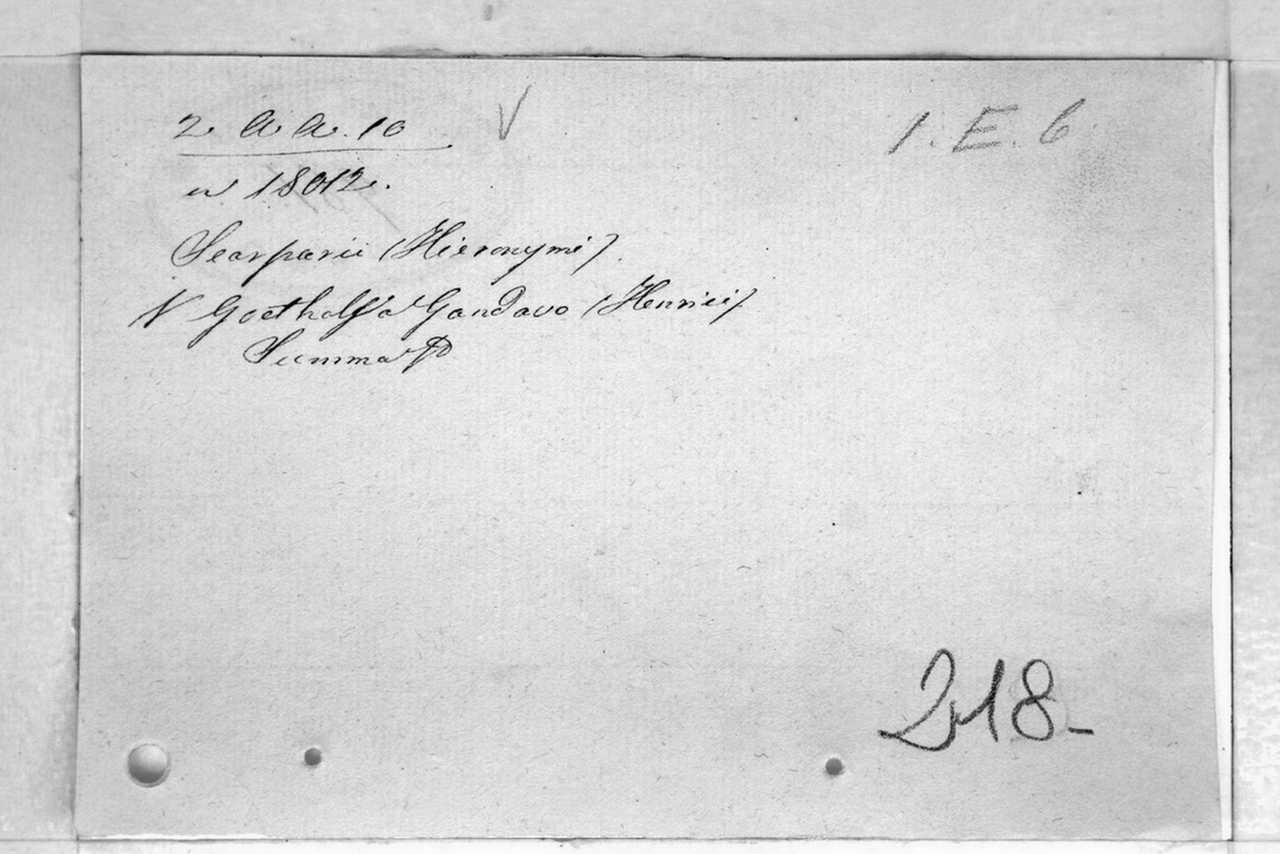 2. a. a. 10
V
1. E. 6
n 18012.
Scarparii (Hieronymi).
V Goethals a Gandavo (Henrici)
Summa
218-